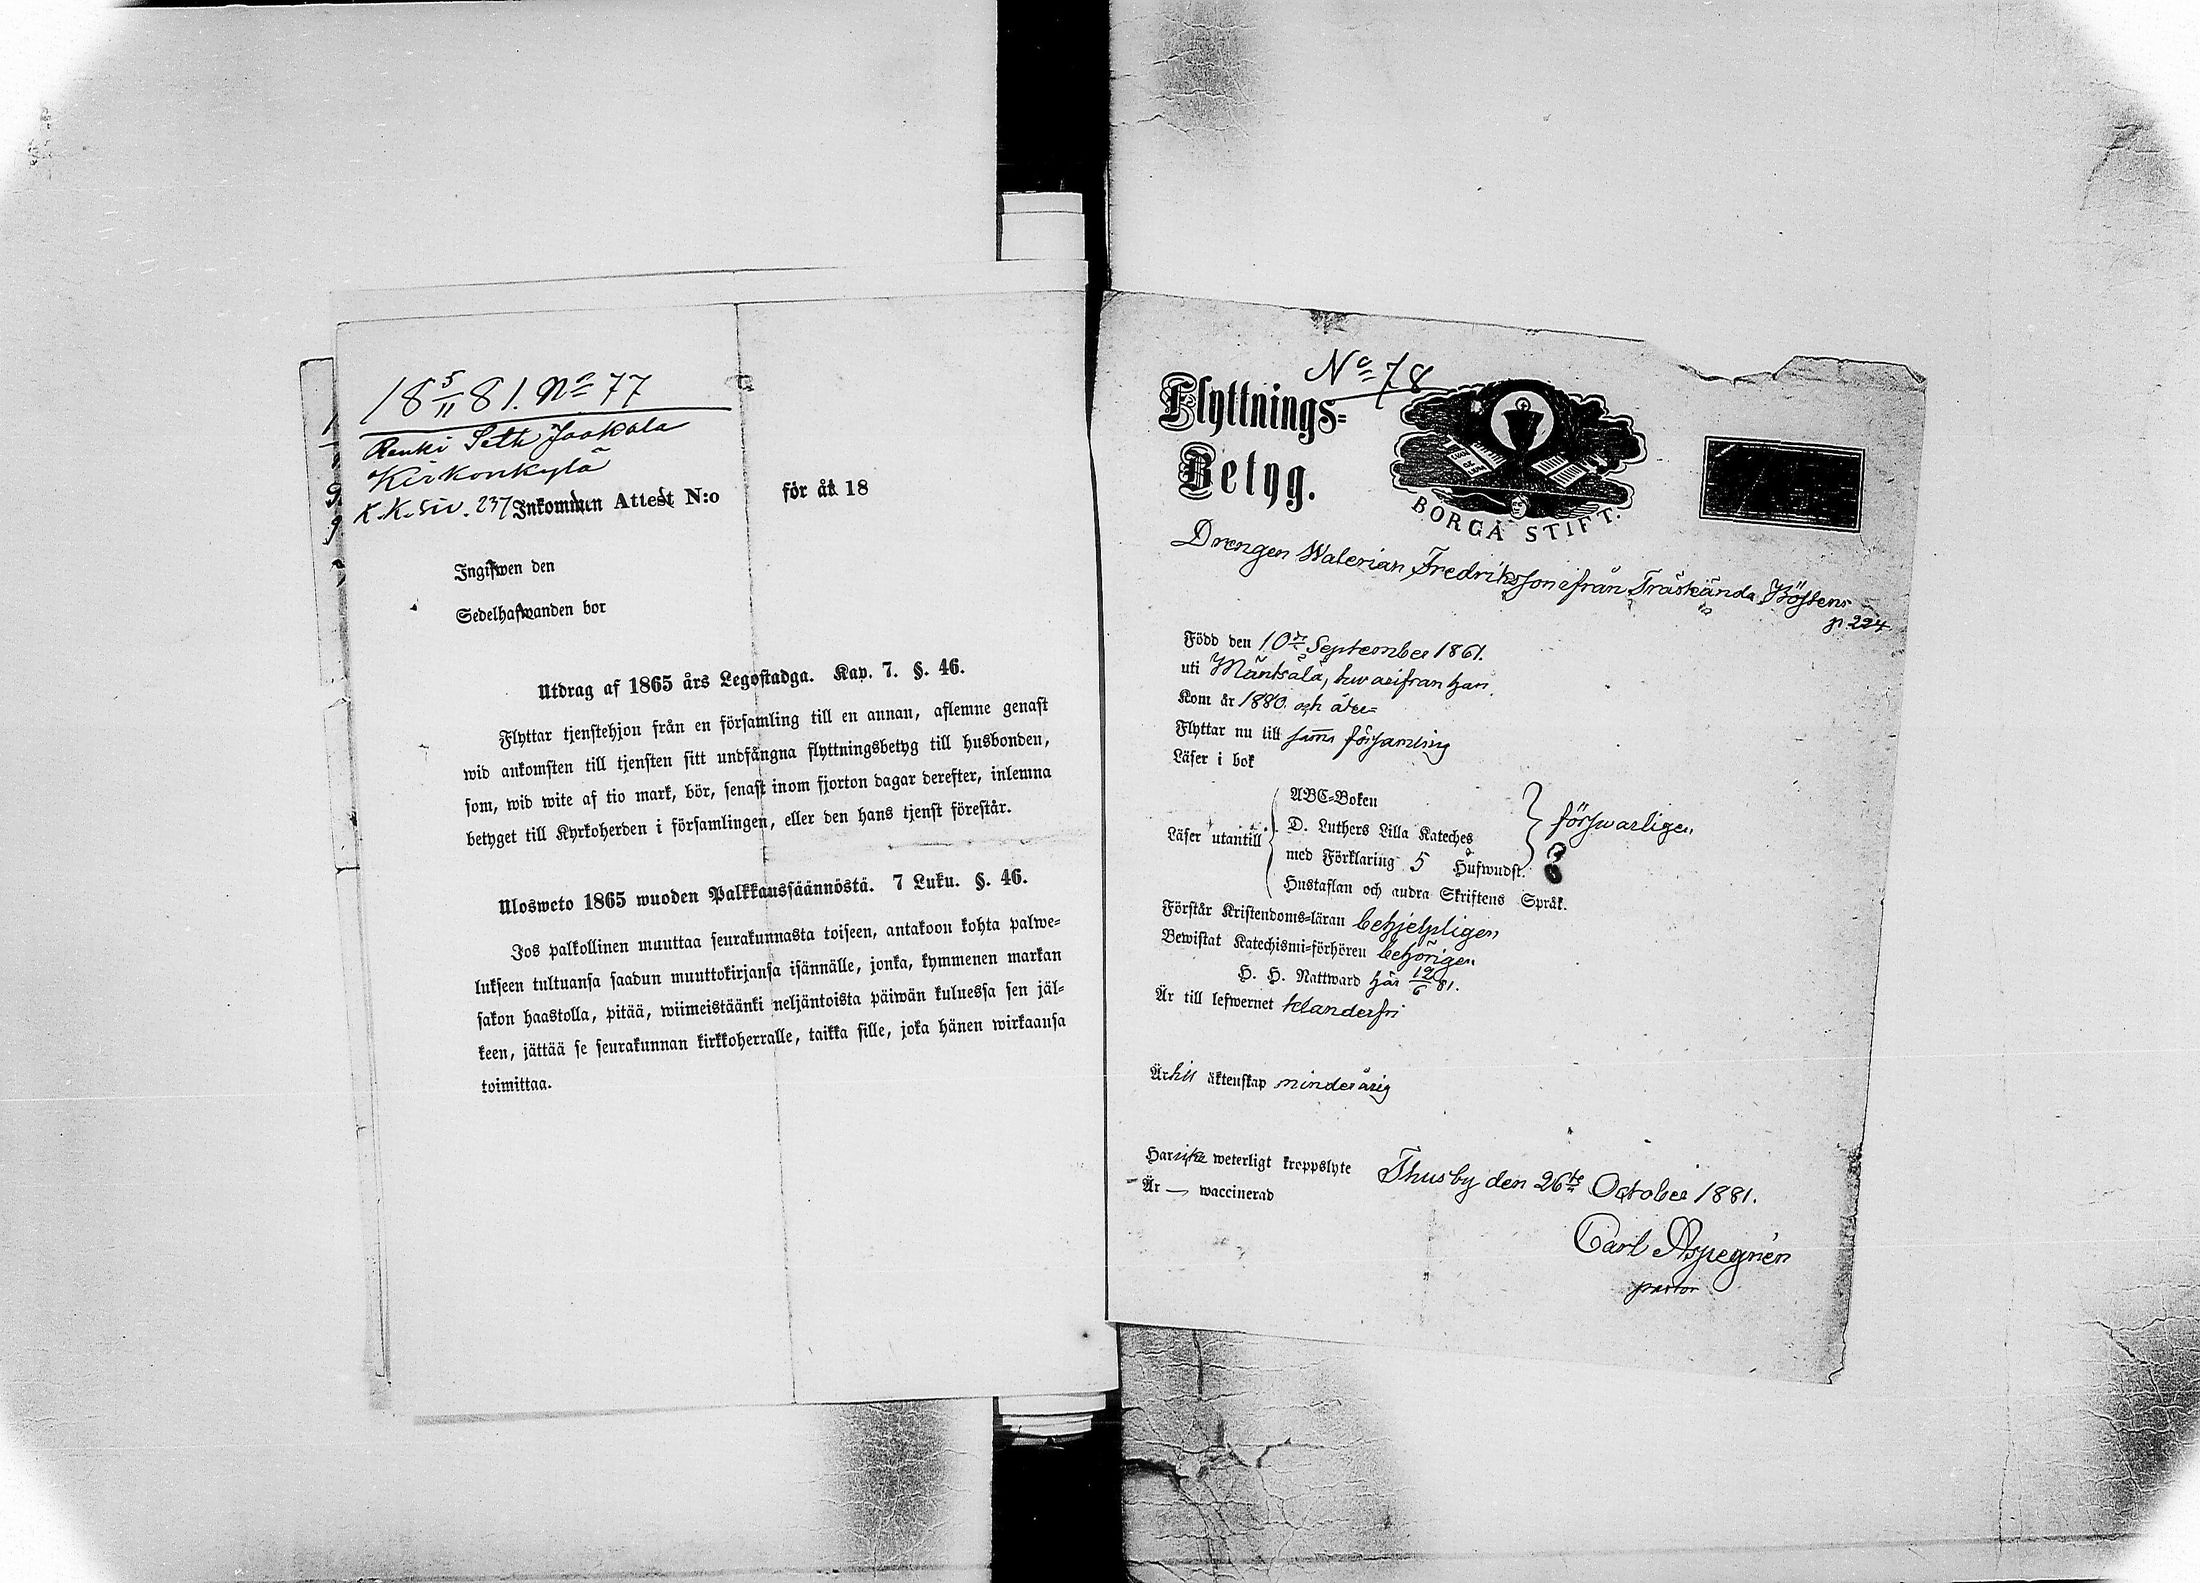 18 5/11 81. No 77
Renki Seth Jaakola
Kirkonkylä
K.K. siv. 237 Inkommen Attest N:o för år 18
Ingifwen den
Sedelhafwanden bor
Utdrag af 1865 års Legostadga. Kap. 7. §. 46.
Flyttar tjenstehjon från en församling till en annan, aflemne genast
wid ankomsten till tjensten sitt undfångna flyttningsbetyg till husbonden,
som, wid wite af tio mark, bör, senast inom fjorton dagar derefter, inlemna
betyget till Kyrkoherden i församlingen, eller den hans tjenst förestår.
Ulosweto 1865 wuoden Palkkaussäännöstä. 7 Luku. §. 46.
Jos palkollinen muuttaa seurakunnasta toiseen, antakoon kohta palwe=
lukseen tultuansa saadun muuttokirjansa isännälle, jonka, kymmenen markan
sakon haastolla, pitää, wiimeistäänki neljäntoista päiwän kuluessa sen jäl=
keen, jättää se seurakunnan kirkkoherralle, taikka sille, joka hänen wirkaansa
toimittaa.
No 78
Flyttnings=
Betyg.
BORGÅ STIFT.
Drengen Walerian Fredriksson ifrån Träskända
p. 224
Född den 10de September 1861.
uti Mäntsälä, hwarifrån han
Kom år 1880. och åter=
Flyttar nu till samma församling
Läser i bok
ABC=Boken
Läser utantill D. Luthers Lilla Kateches försvarligen
med Förklaring 5 Hufwudst.
Hustaflan och andra Skriftens Språk.
Förstår Kristendoms=läran behjelpligen
Bewistat Katechismi=förhören behörigen
H. H. Nattward här 12/6 81.
Är till lefwernet klanderfri
Är till äktenskap minderårig
Har icke weterligt kroppslyte Thusby den 26te October 1881.
Är — waccinerad
Carl Aspegrén
pastor